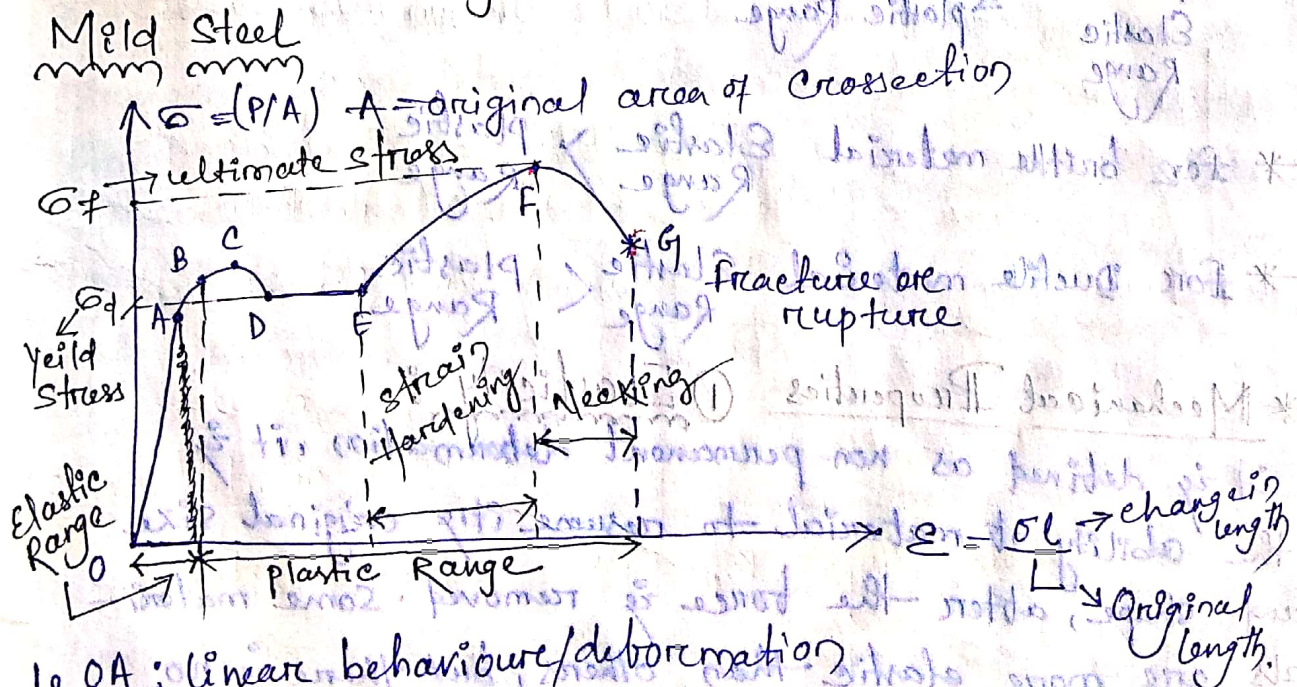 Mild Steel
σ = (P/A) A = original area of Crossection
→ ultimate stress
σf
F
C
B
G
Fracture ore
rupture
σd
A
D
E
Yeild
Stress
Strain
Hardening
Necking
Elastic
Range
O
Plastic Range
ε = δl → change in
length
↳ Original
length.
1. OA : linear behavioure/deformation